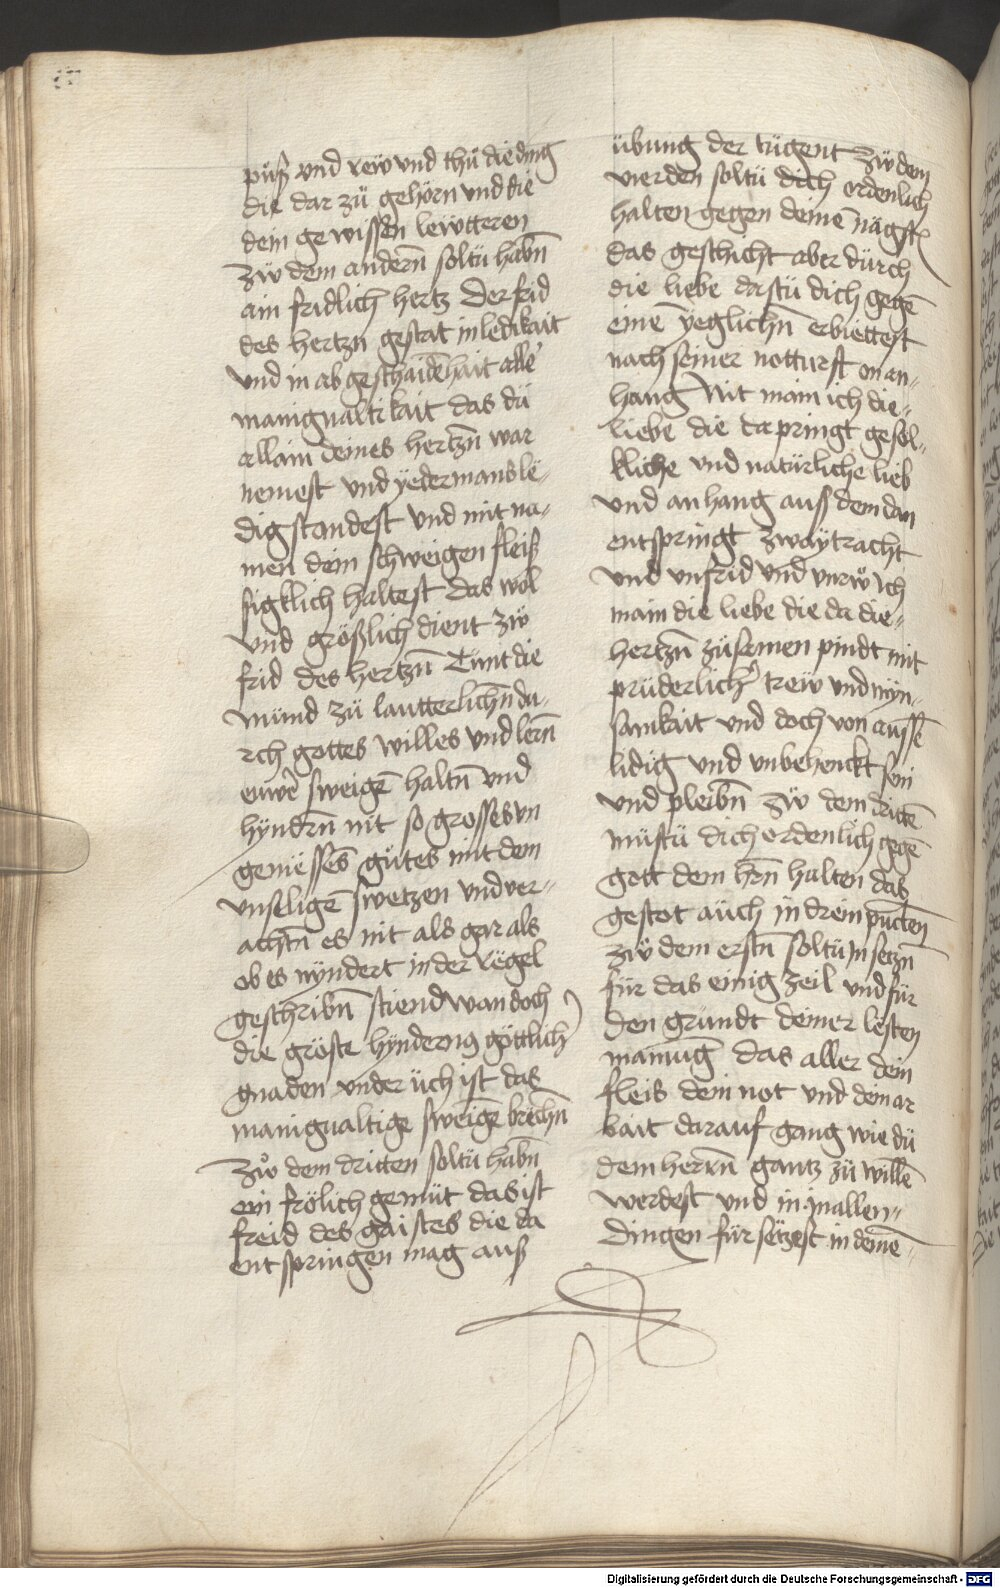 püß vnd rew vnd thü die ding
die dar zü gehörn vnd die
dein gewissen lewtteren
zw dem andern̄ soltü habn̄
ain fridlich hertz Der frid
des hertzn gestat in ledikait
vnd in abgeschaidēhait alle͛
manigualtikait das dü
allain deines hertzn̄ war
nemest vnd yedermans le-
dig standest vnd mit na-
men dein schweigen fleiß
sigklich haltest das wol
vnd größlich dient zw
frid des hertzn̄ Tünt die
münd zü lautterlichn̄ du-
rch gottes willes vnd lern̄
ewre͛ sweigē haltn̄ vnd
hyndrn̄ nit so grosses vn
geniessēs gütes mit dem
vnseligē swetzen vnd ver-
achtn̄ es nit als gar als
ob es nyndert in der regel
geschribn̄ stiend wan doch
die gröste hyndernꝰ göttlich͛
gnaden vnder üch ist das
manigualtige sweigē brechn̄
zẘ dem dritten soltü habn̄
ein frölich gemüt das ist
freid des gaistes die da
entspringen mag auß
übung der tügent zw dem
vierden soltü dich ordenlich
halten gegen deinē nägstn̄
das geschicht aber dürch
die liebe dastü dich gegē
einē yeglichn̄ erbiettest
nach seiner notturft on an-
hang Nit main ich die-
liebe die da pringt gesel-
kliche vnd natürliche lieb
vnd anhang auss dem dan
entspringt zwaytracht
vnd vnfrid vnd vnrẘ Ich
main die liebe die da die-
hertzn̄ züsamen pindt mit
prüderlich͛ trew vnd myn-
samkait vnd doch von aussē
lidig vnd vnbehenckt sein
vnd pleibn̄ zw dem drittē
müstü dich ordenlich gegē
gott dem hrn̄ halten das
gestet aüch in drein puncten
zẘ dem erstn̄ soltü In setzn̄
für das einig zeil vnd für
den gründt deiner lesten
mainūg das aller dein
fleis dein not vnd dein ar
bait darauf gang wie dü
dem herrn̄ gantz zü willē
werdest vnd in in allen-
dingen für setzest in deinē-
Digitalisierung gefördert durch die Deutsche Forschungsgemeinschaft - DFG